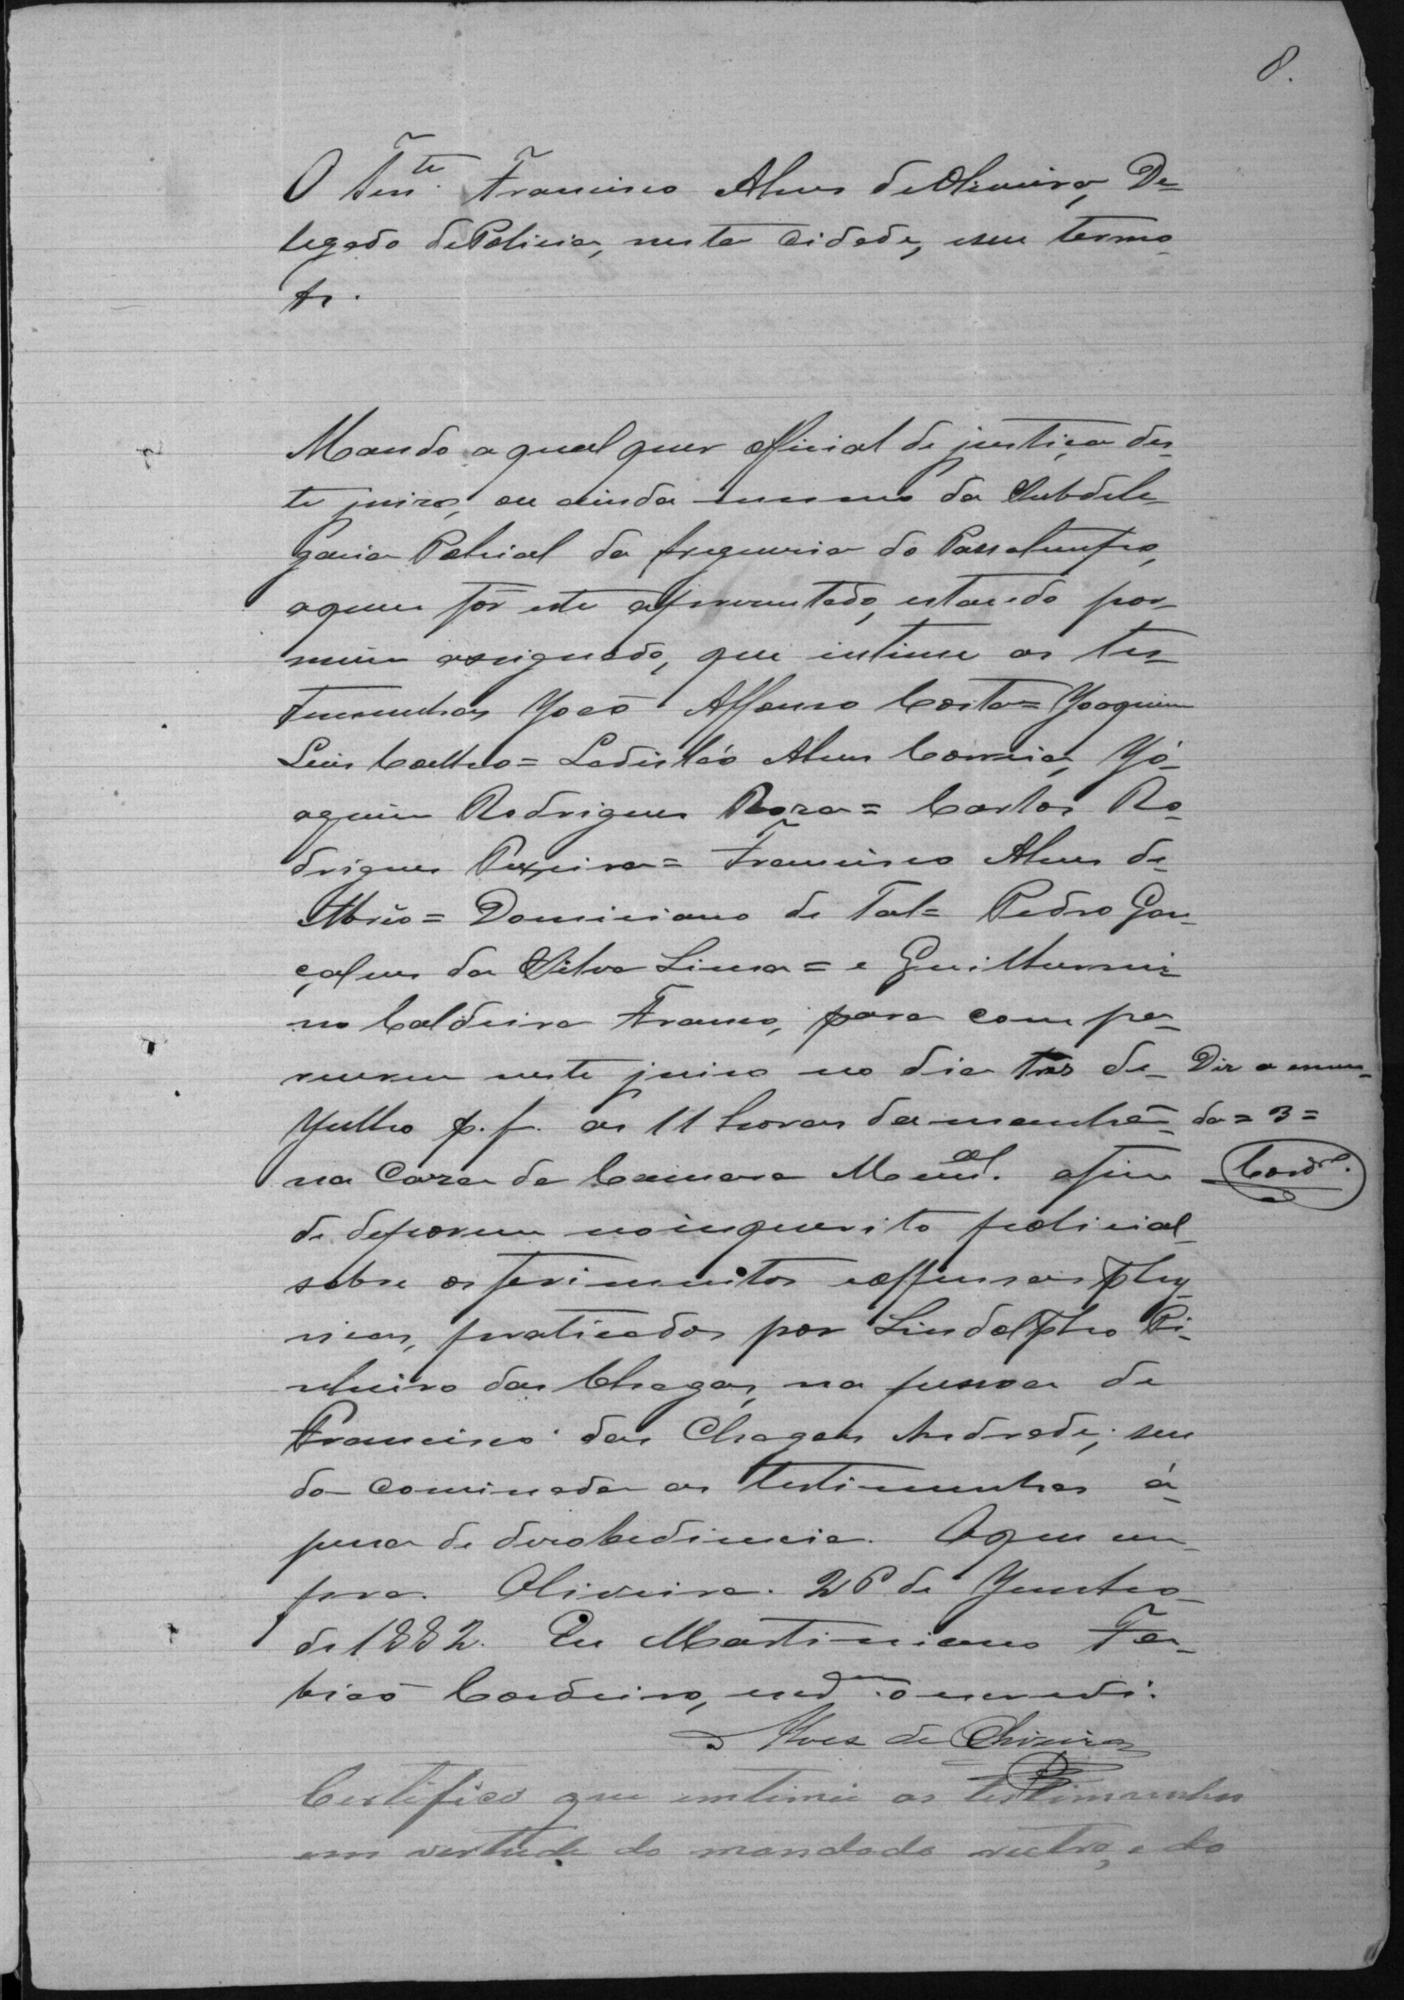 8.
O Ten.te Francisco Alves de Oliveira, De=
legado de Policia, nesta cidade, e seu termo
&.
Mando a qual quer official de justiça des=
te juizo, ou ainda mesmo da Subdele
gacia Policial da freguezia do Passatempo,
a quem fôr este apresentado, estando por
mim assignado, que intime as tes=
temunhas João Affonso Costa= Joaquim
Luis Coelho= Ladisláo Alves Correia, Jo=
aquim Rodrigues Roza= Carlos Ro=
drigues Pereira= Francisco Alves de
Abrêo= Domiciano de Tal= Pedro Gon
çalves da Silva Lima= e Guilhermi
no Caldeira Franco, para com pa=
recerem neste juizo no dia tres de
Julho p. f. as 11 horas da manhã=
na Caza da Camara M.al afim
de deporem no inquerito policial
sobre os ferimentos e offensas phy
sicas, praticados por Lindolpho Pi=
nheiro das Chagas, na pessoa de
Francisco das Chagas Andrade; sen
do cominada as testimunhas á
pena de desobediencia. O que cum
pra. Oliveira. 26 de Junho
de 1882. Eu Martiniano Fa=
bião Cordeiro, o escrevi.
Diz a emen=
da = 3 =
Cord.ro
Alves de Oliveira
Certifico que intimei as testimunhas
em vertude do mandado rectro, e do